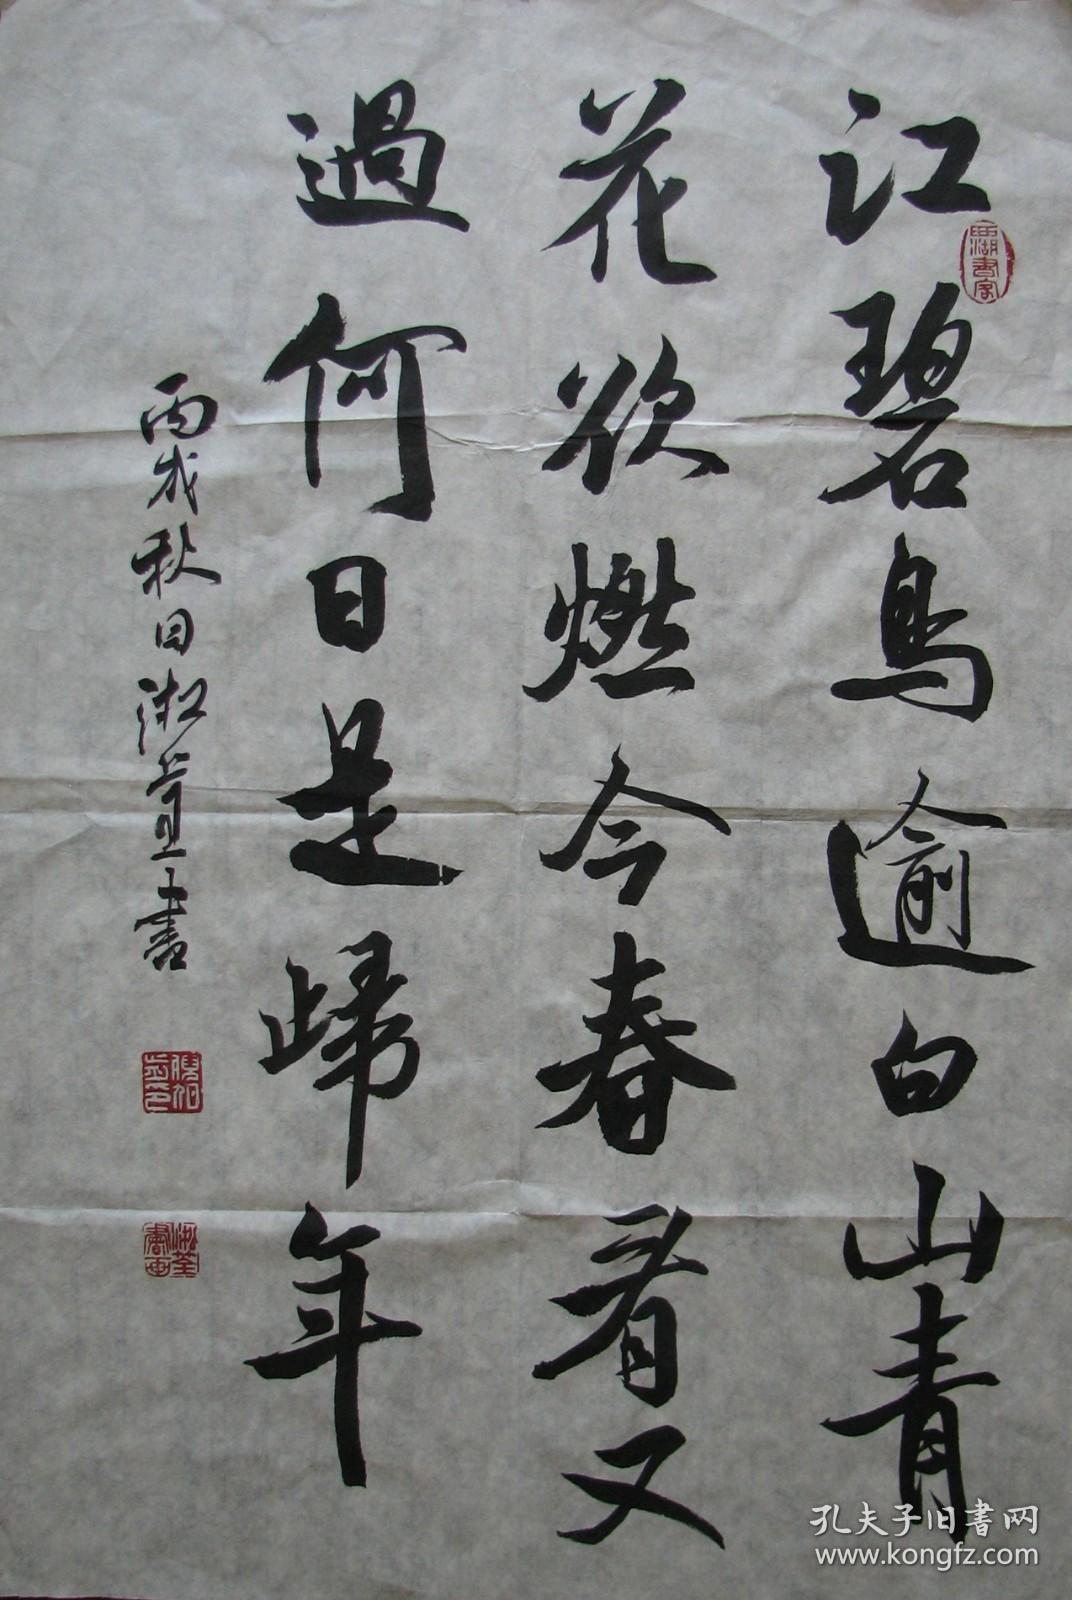 江碧鳥逾白山青
花欲燃今春看又
過何日是歸年
丙戌秋日淑萱書
西湖書客
孔夫子旧書网
www.kongfz.com